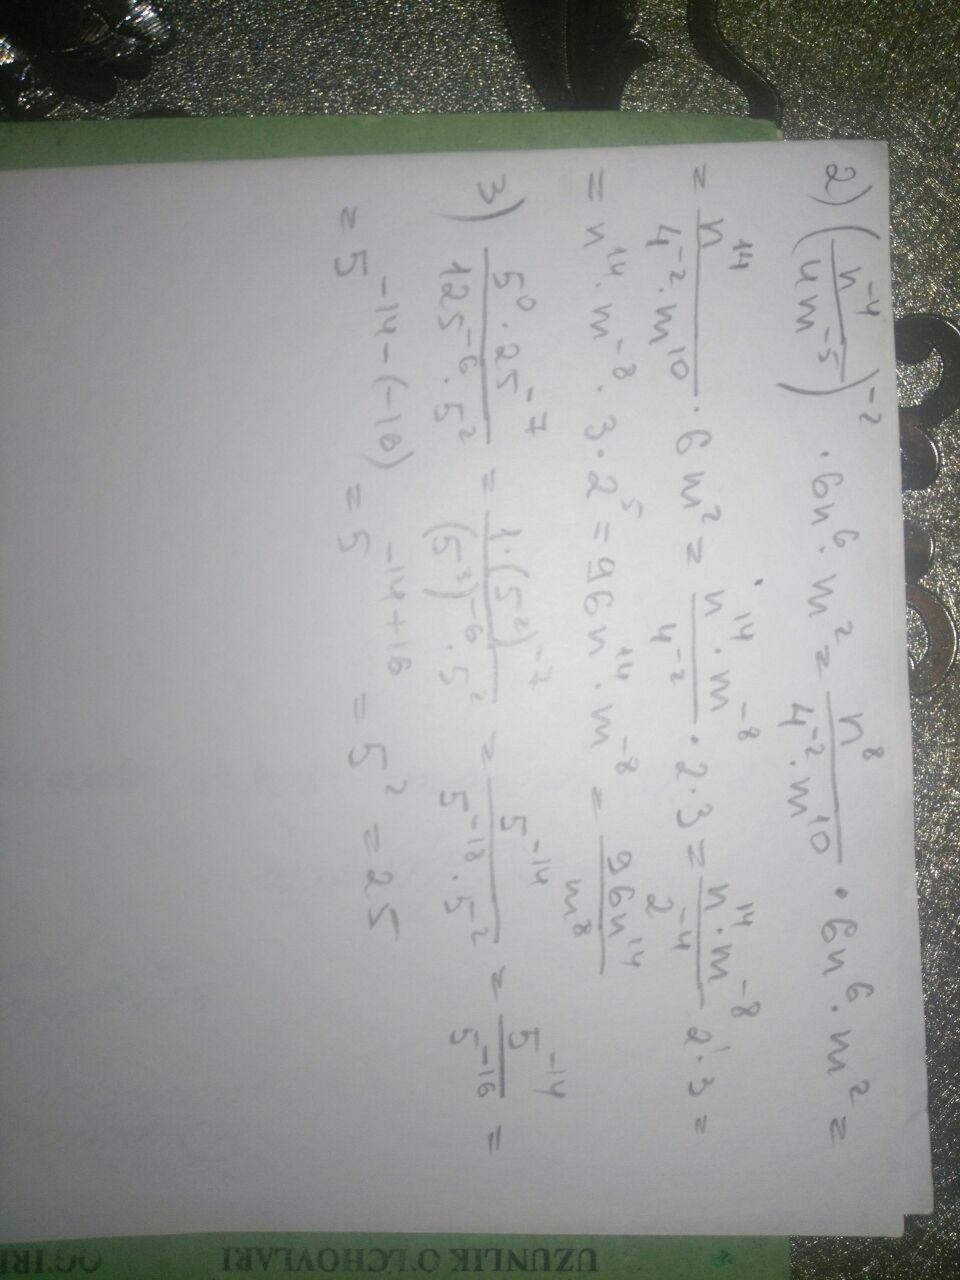 2) (n⁻⁴/4m⁻⁵)⁻² · 6n⁶ · m² = n⁸/4⁻² · m¹⁰ · 6n⁶ · m² =
= n¹⁴/4⁻² · m¹⁰ · 6m² = n¹⁴ · m⁻⁸/4⁻² · 2·3 = n¹⁴ · m⁻⁸/2⁻⁴ 2¹·3 =
= n¹⁴ · m⁻⁸ · 3·2⁵ = 96n¹⁴ · m⁻⁸ = 96n¹⁴/m⁸
3) 5⁰ · 25⁻⁷/125⁻⁶ · 5² = 1·(5²)⁻⁷/(5³)⁻⁶ · 5² = 5⁻¹⁴/5⁻¹⁸ · 5² = 5⁻¹⁴/5⁻¹⁶ =
= 5⁻¹⁴⁻⁽⁻¹⁶⁾ = 5⁻¹⁴⁺¹⁶ = 5² = 25
UZUNLIK O'LCHOVLARI